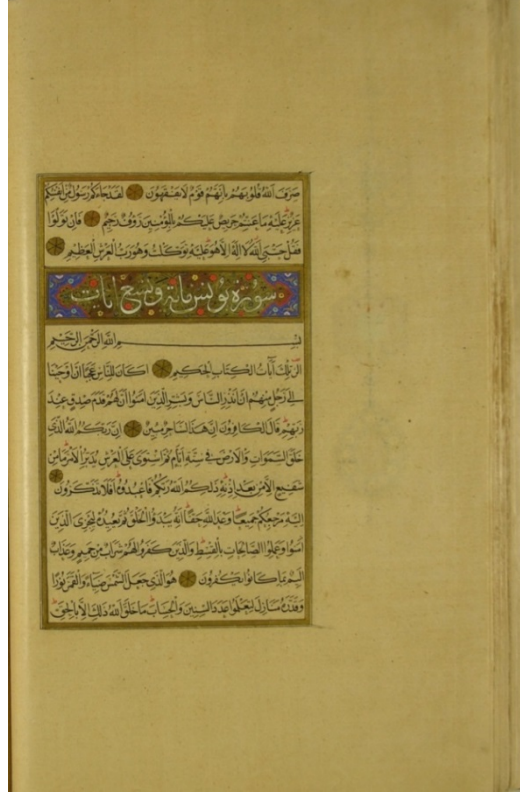 صرف الله قلوبهم بانهم قوم لا يفقهون لقد جاءكم رسول من انفسكم
عزيز عليه ما عنتم حريص عليكم بالمؤمنين رؤف رحيم فان تولوا
فقل حسبي الله لا اله الا هو عليه توكلت وهو رب العرش العظيم
سورة يونس مائة وتسع ايات
بسم الله الرحمن الرحيم
الر تلك آيات الكتاب الحكيم اكان للناس عجبا ان اوحينا
الى رجل منهم ان انذر الناس وبشر الذين امنوا ان لهم قدم صدق عند
ربهم قال الكافرون ان هذا لساحر مبين ان ربكم الله الذي
خلق السموات والارض في ستة ايام ثم استوى على العرش يدبر الامر ما من
شفيع الا من بعد اذنه ذلكم الله ربكم فاعبدوه افلا تذكرون
اليه مرجعكم جميعا وعد الله حقا انه يبدؤا الخلق ثم يعيده ليجزى الذين
امنوا وعملوا الصالحات بالقسط والذين كفروا لهم شراب من حميم وعذاب
اليم بما كانوا يكفرون هو الذي جعل الشمس ضياء والقمر نورا
وقدره منازل لتعلموا عدد السنين والحساب ما خلق الله ذلك الا بالحق